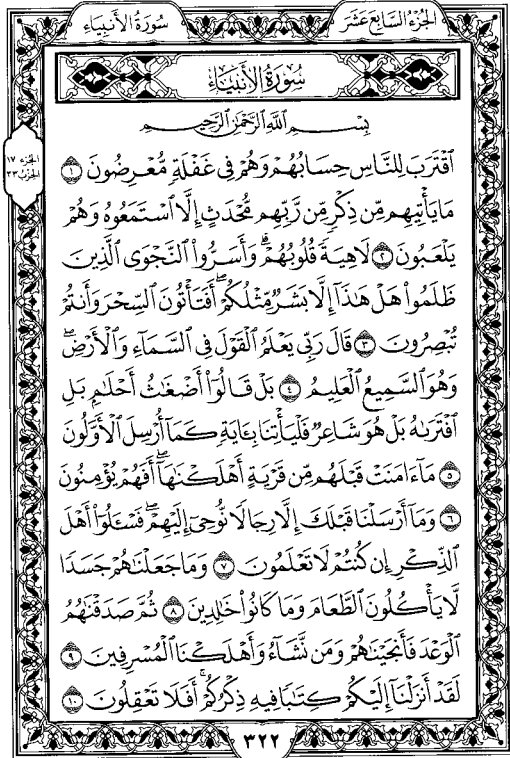 الجزء السابع عشر
سورة الأنبياء
سُورَةُ الأَنبِيَاءِ
بِسْمِ ٱللَّهِ ٱلرَّحْمَٰنِ ٱلرَّحِيمِ
الجزء ١٧
الحزب ٣٣
ٱقْتَرَبَ لِلنَّاسِ حِسَابُهُمْ وَهُمْ فِى غَفْلَةٍ مُّعْرِضُونَ ١
مَا يَأْتِيهِم مِّن ذِكْرٍ مِّن رَّبِّهِم مُّحْدَثٍ إِلَّا ٱسْتَمَعُوهُ وَهُمْ
يَلْعَبُونَ ٢ لَاهِيَةً قُلُوبُهُمْ ۗ وَأَسَرُّوا۟ ٱلنَّجْوَى ٱلَّذِينَ
ظَلَمُوا۟ هَلْ هَٰذَآ إِلَّا بَشَرٌ مِّثْلُكُمْ ۖ أَفَتَأْتُونَ ٱلسِّحْرَ وَأَنتُمْ
تُبْصِرُونَ ٣ قَالَ رَبِّى يَعْلَمُ ٱلْقَوْلَ فِى ٱلسَّمَآءِ وَٱلْأَرْضِ ۖ
وَهُوَ ٱلسَّمِيعُ ٱلْعَلِيمُ ٤ بَلْ قَالُوٓا۟ أَضْغَٰثُ أَحْلَٰمٍۭ بَلِ
ٱفْتَرَىٰهُ بَلْ هُوَ شَاعِرٌ فَلْيَأْتِنَا بِـَٔايَةٍ كَمَآ أُرْسِلَ ٱلْأَوَّلُونَ
٥ مَآ ءَامَنَتْ قَبْلَهُم مِّن قَرْيَةٍ أَهْلَكْنَٰهَآ ۖ أَفَهُمْ يُؤْمِنُونَ
٦ وَمَآ أَرْسَلْنَا قَبْلَكَ إِلَّا رِجَالًا نُّوحِىٓ إِلَيْهِمْ ۖ فَسْـَٔلُوٓا۟ أَهْلَ
ٱلذِّكْرِ إِن كُنتُمْ لَا تَعْلَمُونَ ٧ وَمَا جَعَلْنَٰهُمْ جَسَدًا
لَّا يَأْكُلُونَ ٱلطَّعَامَ وَمَا كَانُوا۟ خَٰلِدِينَ ٨ ثُمَّ صَدَقْنَٰهُمُ
ٱلْوَعْدَ فَأَنجَيْنَٰهُمْ وَمَن نَّشَآءُ وَأَهْلَكْنَا ٱلْمُسْرِفِينَ ٩
لَقَدْ أَنزَلْنَآ إِلَيْكُمْ كِتَٰبًا فِيهِ ذِكْرُكُمْ ۖ أَفَلَا تَعْقِلُونَ ١٠
٣٢٢